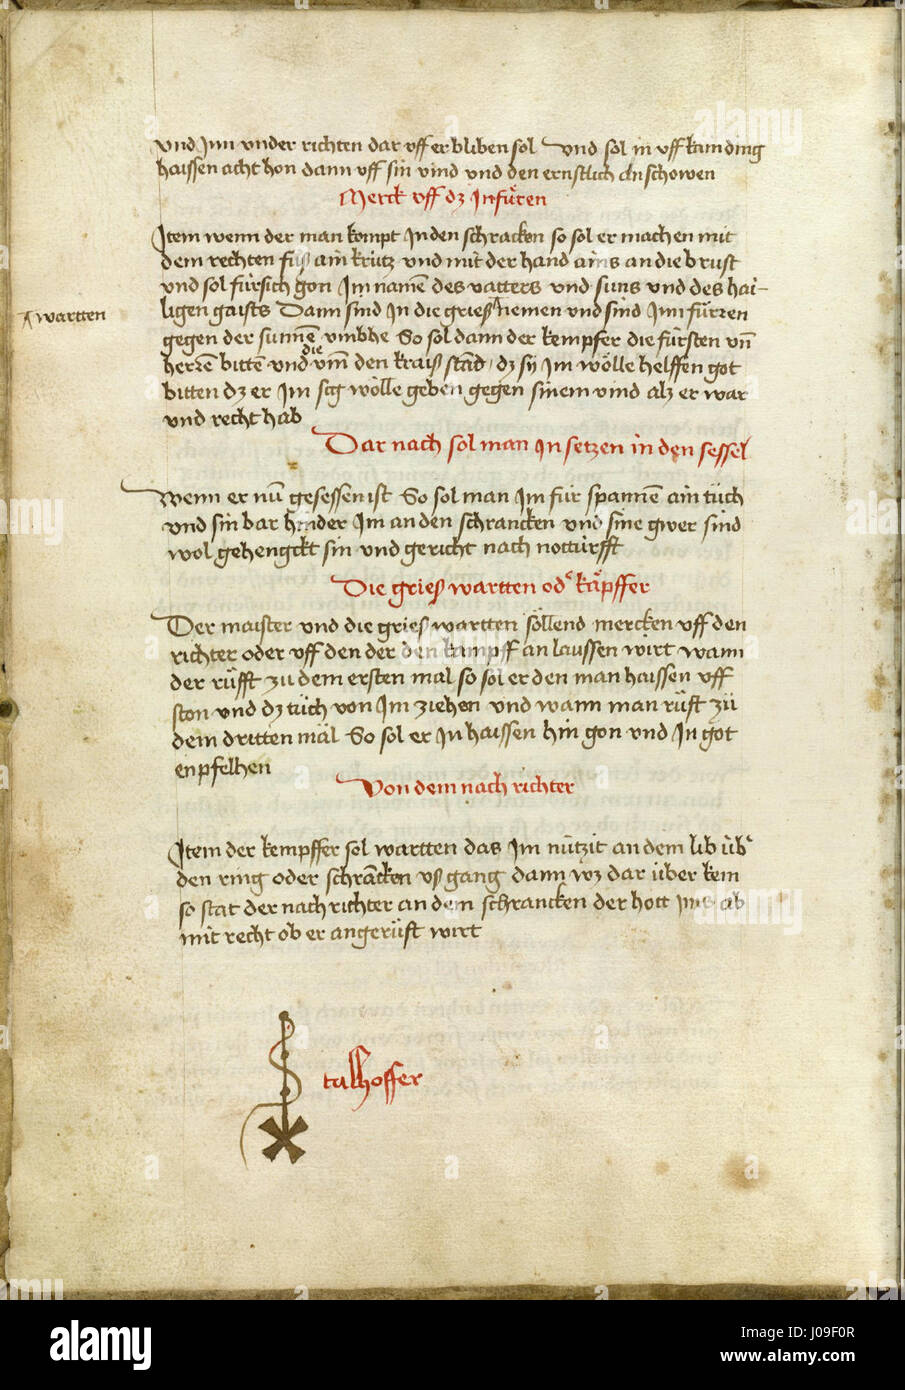 vnd Jnn vnder richten dar vff er bliben sol vnd sol in vff kain ding
haissen acht hon dann vff sin vind vnd den ernstlich an schowen
Merck vff dz Jnfüren
Jtem wenn der man kompt Jn den schrancken so sol er machen mit
dem rechten fuß ain krütz vnd mit der hand ains an die brust
vnd sol fürsich gon Jm namē des vatters vnd suns vnd des hai-
ligen gaists Dann sind Jn die grieß ^ nemen vnd sind Jnn füren
^ wartten
gegen der sunnē vmbhe So sol dann der kempfer die fürsten vn̄
herrē bitten vnd die vmm den kraiß stād dz sy Jm wölle helffen got
bitten dz er Jm sig wölle geben gegen sinem vind alz er war
vnd recht hab
Dar nach sol man Jn setzen in den sessel
Wenn er nū gesessen ist So sol man Jm für spannē ain tüch
vnd sin bar hinder Jm an den schrancken vnd sine gwer sind
wol gehengckt sin vnd gericht nach notturfft
Die grieß wartten od' käpffer
Der maister vnd die grieß wartten söllend mercken vff den
richter oder vff den der den kampff an laussen wirt wann
der rüfft zu dem ersten mal so sol er den man haissen vff
ston vnd dz tüch von Jm ziehen vnd wann man rüft zü
dem dritten mäl So sol er Jn haissen hin gon vnd Jn got
enpfelhen
Von dem nach richter
Jtem der kempffer sol wartten das Jm nützit an dem lib üb'
den ring oder schrācken vß gang dann wz dar über kem
so stat der nach richter an dem schrancken der hott Jms ab
mit recht ob er angerüft wirt
talhoffer
alamy
alamy
Image ID: J09F0R
www.alamy.com